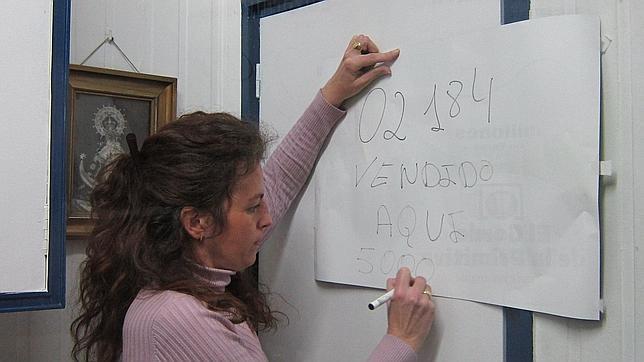 02184
VENDIDO
AQUI
5000